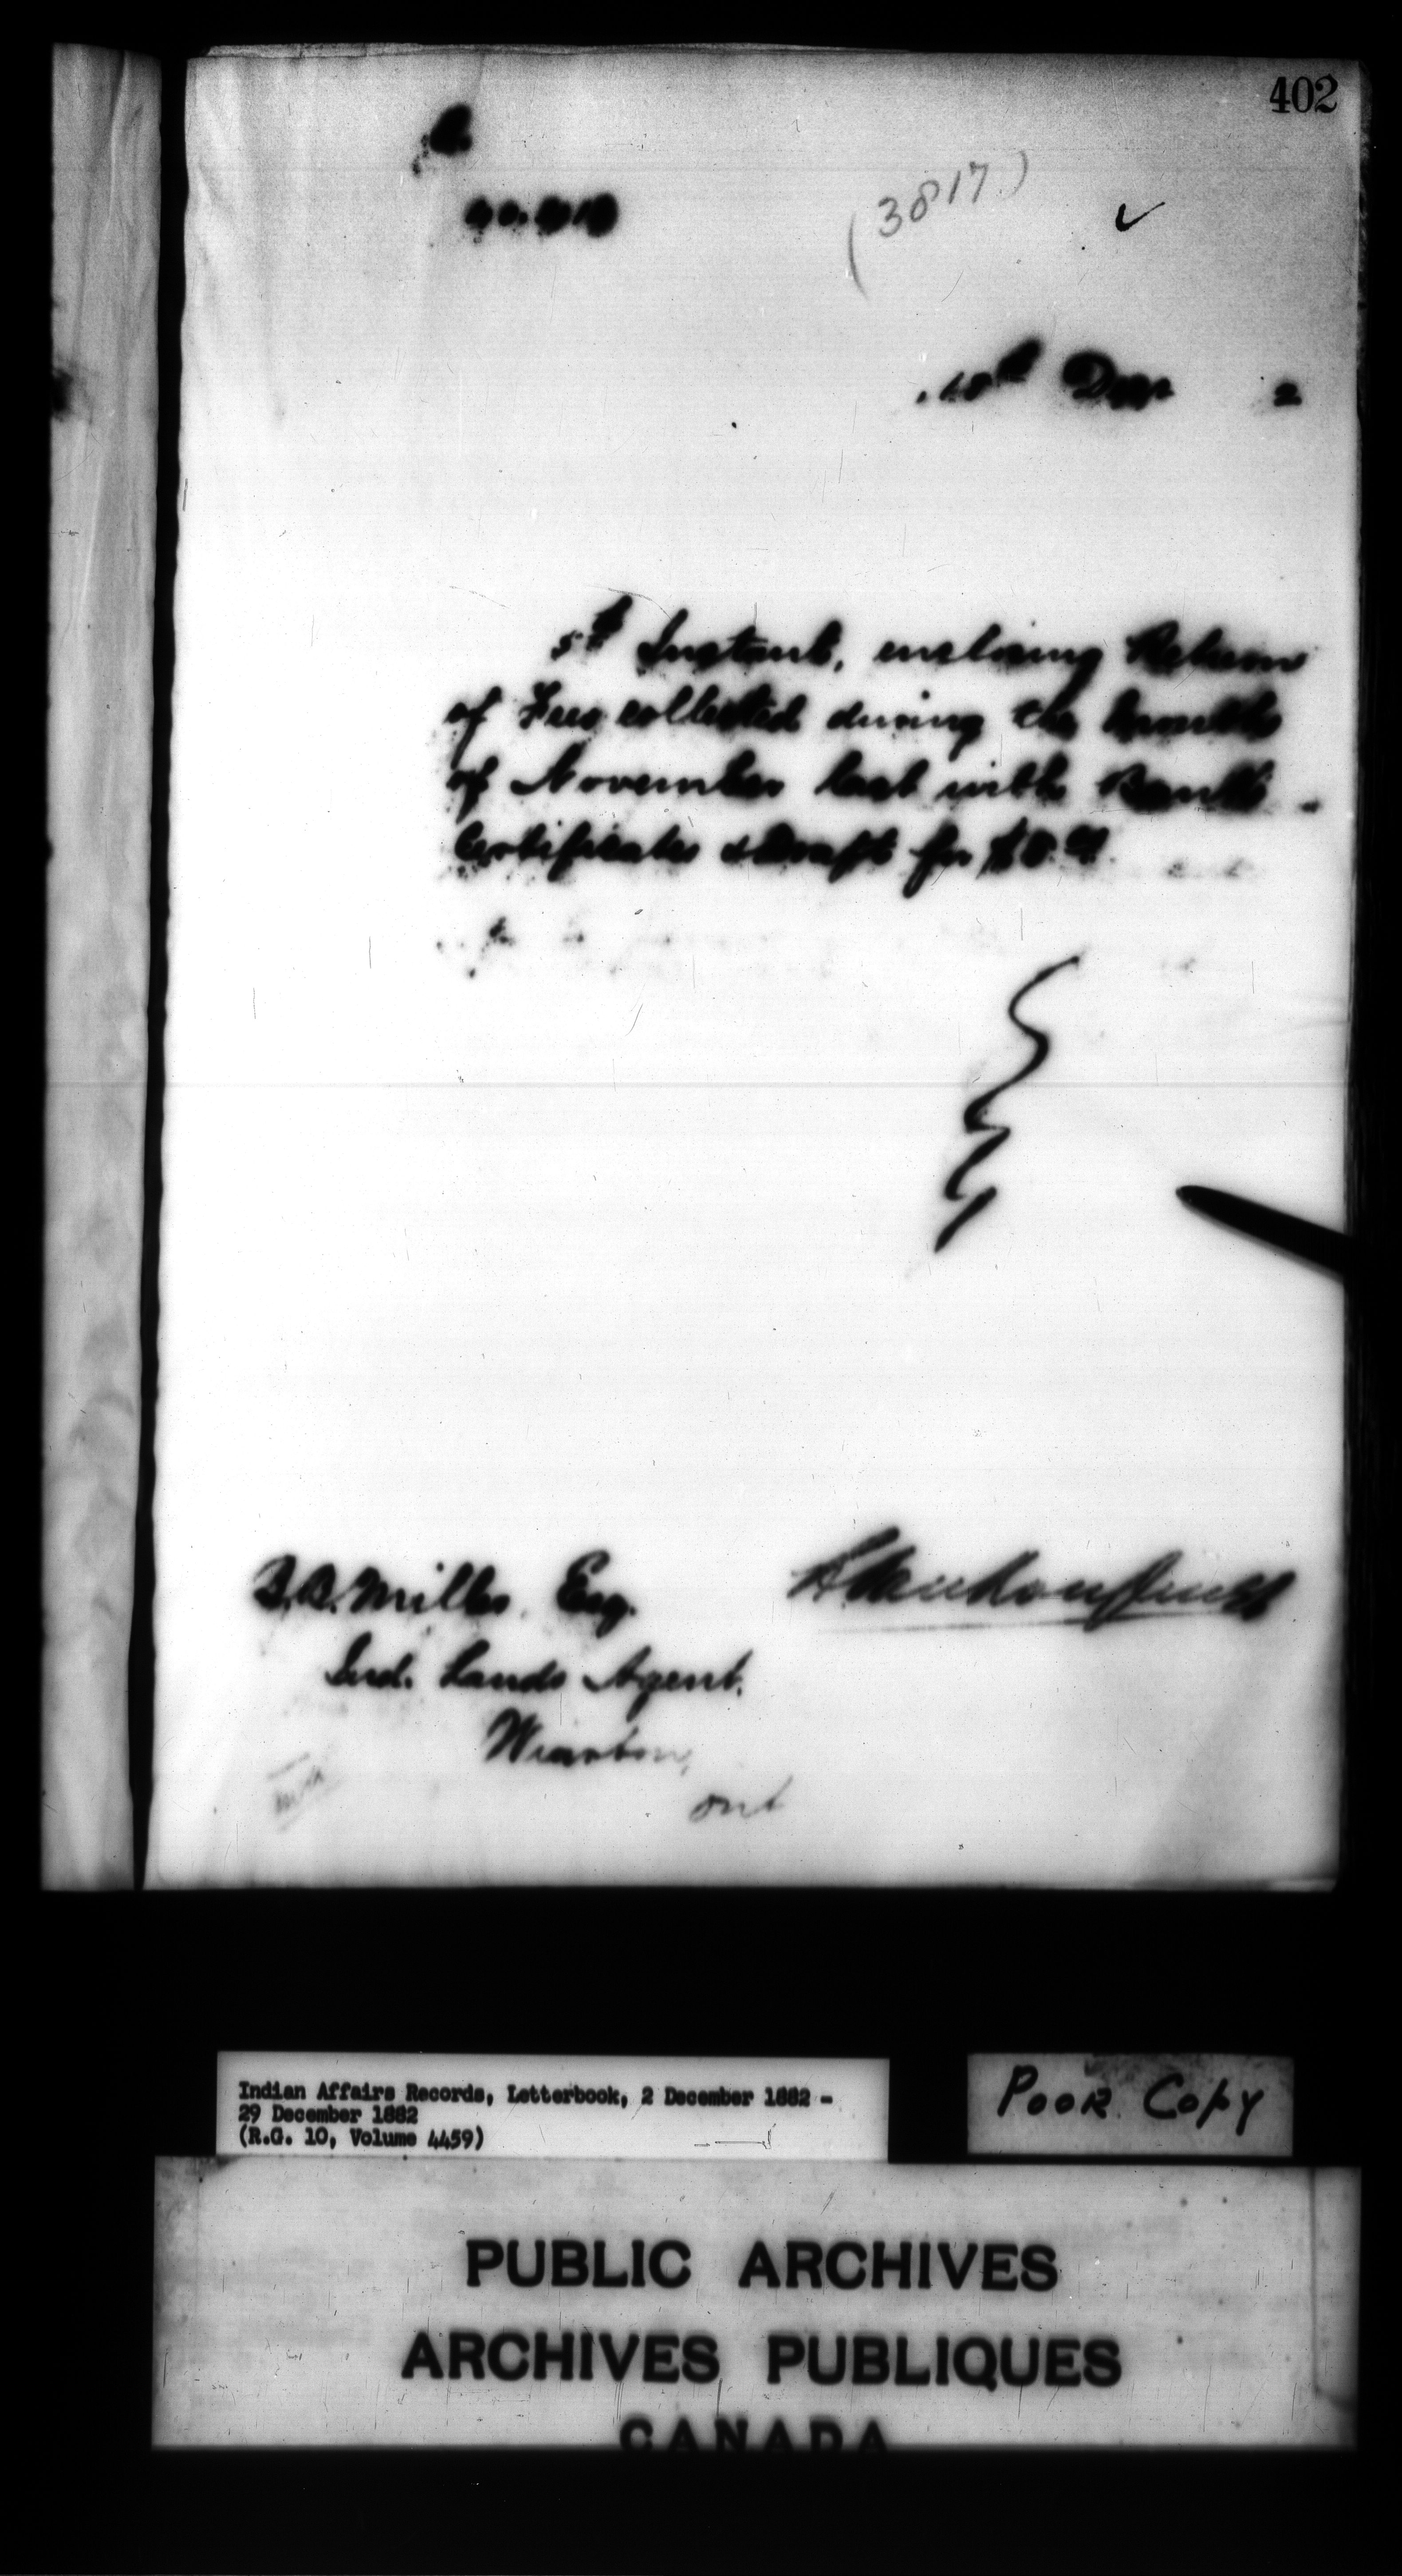 402
(3817)
18th Decr 2
5th Instant, enclosing Return
of Fees collected during the month
of November last with Bank
Certificate & Draft for
B.B. Miller, Esq.
Ind. Lands Agent.
Wiarton,
Ont
Indian Affairs Records, Letterbook, 2 December 1882 -
29 December 1882
(R.G. 10, Volume 4459)
POOR COPY
PUBLIC ARCHIVES
ARCHIVES PUBLIQUES
CANADA